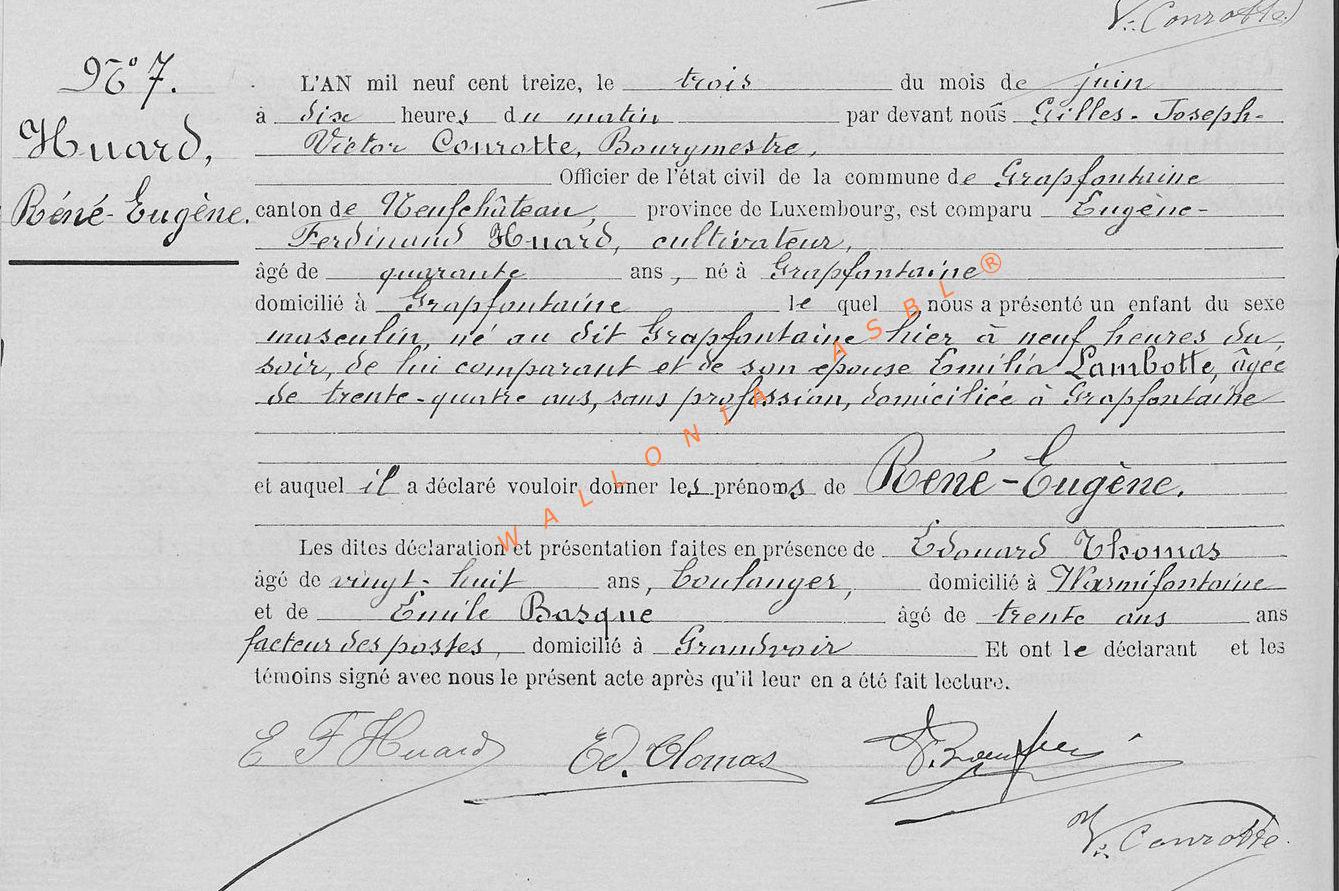 V. Conrotte
No 7.
Huard,
Réné-Eugène.
L'AN mil neuf cent treize, le trois du mois de juin
à dix heures du matin par devant nous Gilles-Joseph-
Victor Conrotte, Bourgmestre,
Officier de l'état civil de la commune de Grapfontaine
canton de Neufchâteau, province de Luxembourg, est comparu Eugène-
Ferdinand Huard, cultivateur,
âgé de quarante ans, né à Grapfontaine
domicilié à Grapfontaine le quel nous a présenté un enfant du sexe
masculin, né au dit Grapfontaine hier à neuf heures du
soir, de lui comparant et de son epouse Emilia Lambotte, âgée
de trente-quatre ans, sans profession, domiciliée à Grapfontaine
et auquel il a déclaré vouloir donner les prénoms de Réné-Eugène.
Les dites déclaration et présentation faites en présence de Edouard Thomas
âgé de vingt-huit ans, boulanger, domicilié à Warmifontaine
et de Emile Basque âgé de trente ans ans
facteur des postes, domicilié à Grandvoir Et ont le déclarant et les
témoins signé avec nous le présent acte après qu'il leur en a été fait lecture.
E F Huard Ed. Thomas
V. Conrotte.
WALLONIA ASBL ®